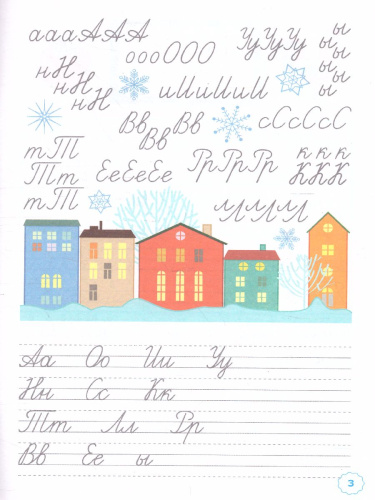 аааААА
оооООО
УуУуУу
ы
ы
ы
ы
ы
ы
нН
нН
нН
иИиИиИ
Вв Вв
Вв
сСсСсС
тТ
Тт
тТ
ЕеЕеЕе
РрРрРр
к к к
К К К
лЛлЛлЛ
Аа Оо Ии Уу
Нн Сс Кк
Тт Лл Рр
Вв Ее ы
3